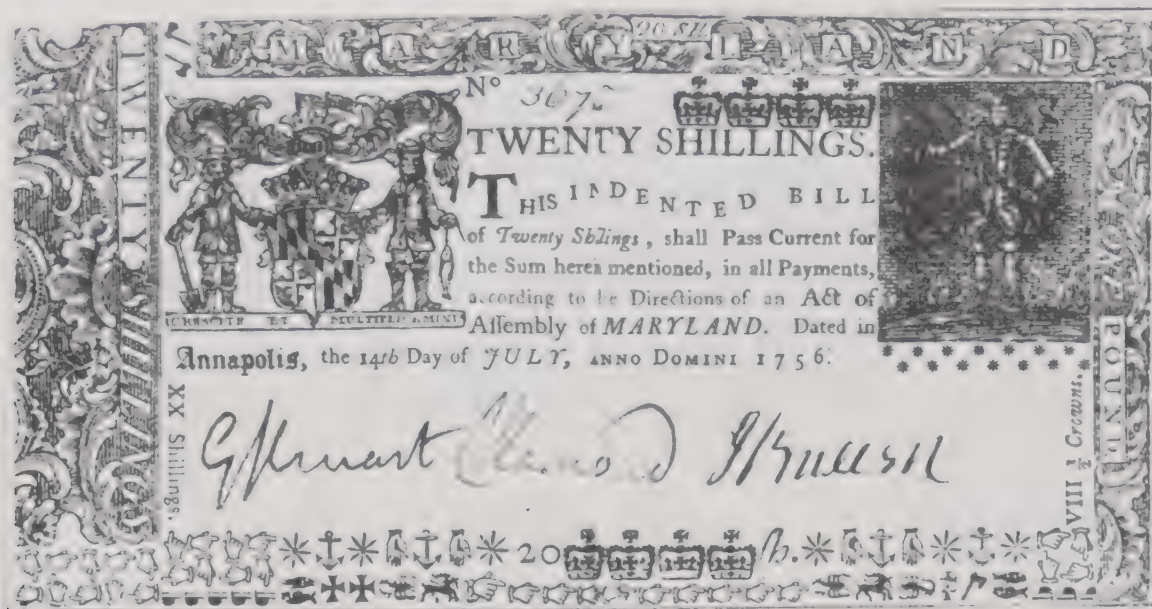 MARYLAND
TWENTY SHILLINGS
Nº 307
TWENTY SHILLINGS.
THIS INDENTED BILL
of Twenty Shillings, shall Pass Current for
the Sum herein mentioned, in all Payments,
according to the Directions of an Act of
Assembly of MARYLAND. Dated in
Annapolis, the 14th Day of JULY, ANNO DOMINI 1756.
CRESCITE ET MULTIPLICAMINI
POUND
XX Shillings.
VIII ½ Crowns.
20